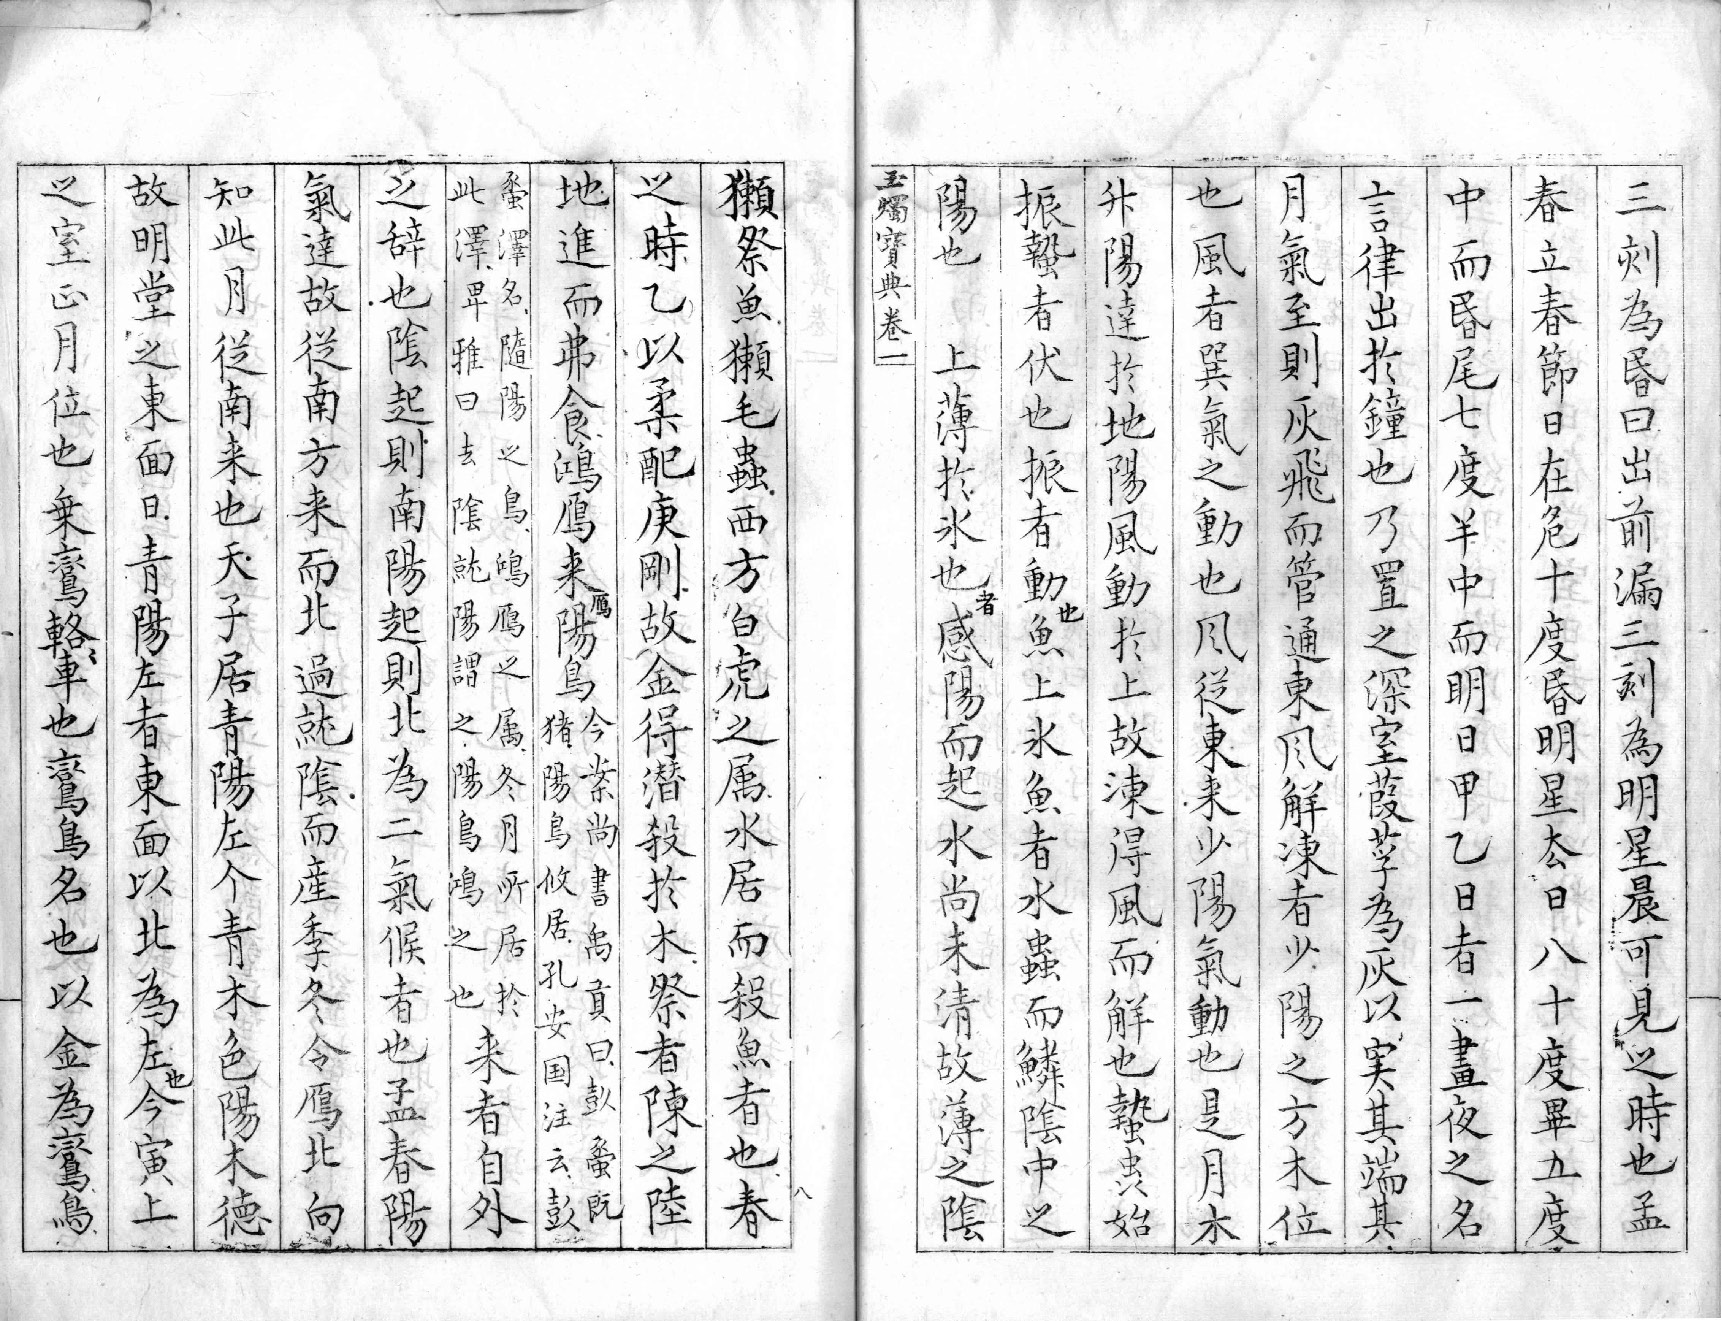 三刻為昏曰出前漏三刻為明星晨可見之時也孟
春立春節日在危十度昏明星去日八十度畢五度
中而昏尾七度半中而明日甲乙日者一晝夜之名
言律出於鐘也乃置之深室葭莩為灰以実其端其
月氣至則灰飛而管通東風解凍者少陽之方木位
也風者巽氣之動也風從東来少陽氣動也是月木
升陽達於地陽風動於上故凍得風而解也蟄虫始
振蟄者伏也振者動也魚上氷魚者水蟲而鱗陰中之
陽也 上薄於氷也者感陽而起水尚未清故薄之陰
玉燭寳典卷一
獺祭魚獺毛蟲西方白虎之属水居而殺魚者也春
之時乙以柔配庚剛故金得潜殺於木祭者陳之陸
地進而弗食鴻鴈来鴈陽鳥今案尚書禹貢曰彭蠡既
猪陽鳥攸居孔安国注云彭
蠡澤名随陽之鳥鴻鴈之属冬月所居於
此澤畢雅曰去陰就陽謂之陽鳥鴻之也来者自外
之辞也陰起則南陽起則北為二氣候者也孟春陽
氣達故從南方来而北過就陰而産季冬令鴈北向
知此月從南来也天子居青陽左个青木色陽木德
故明堂之東面曰青陽左者東面以北為左也今寅上
之室正月位也乗鸞輅〻車也鸞鳥名也以金為鸞鳥
八